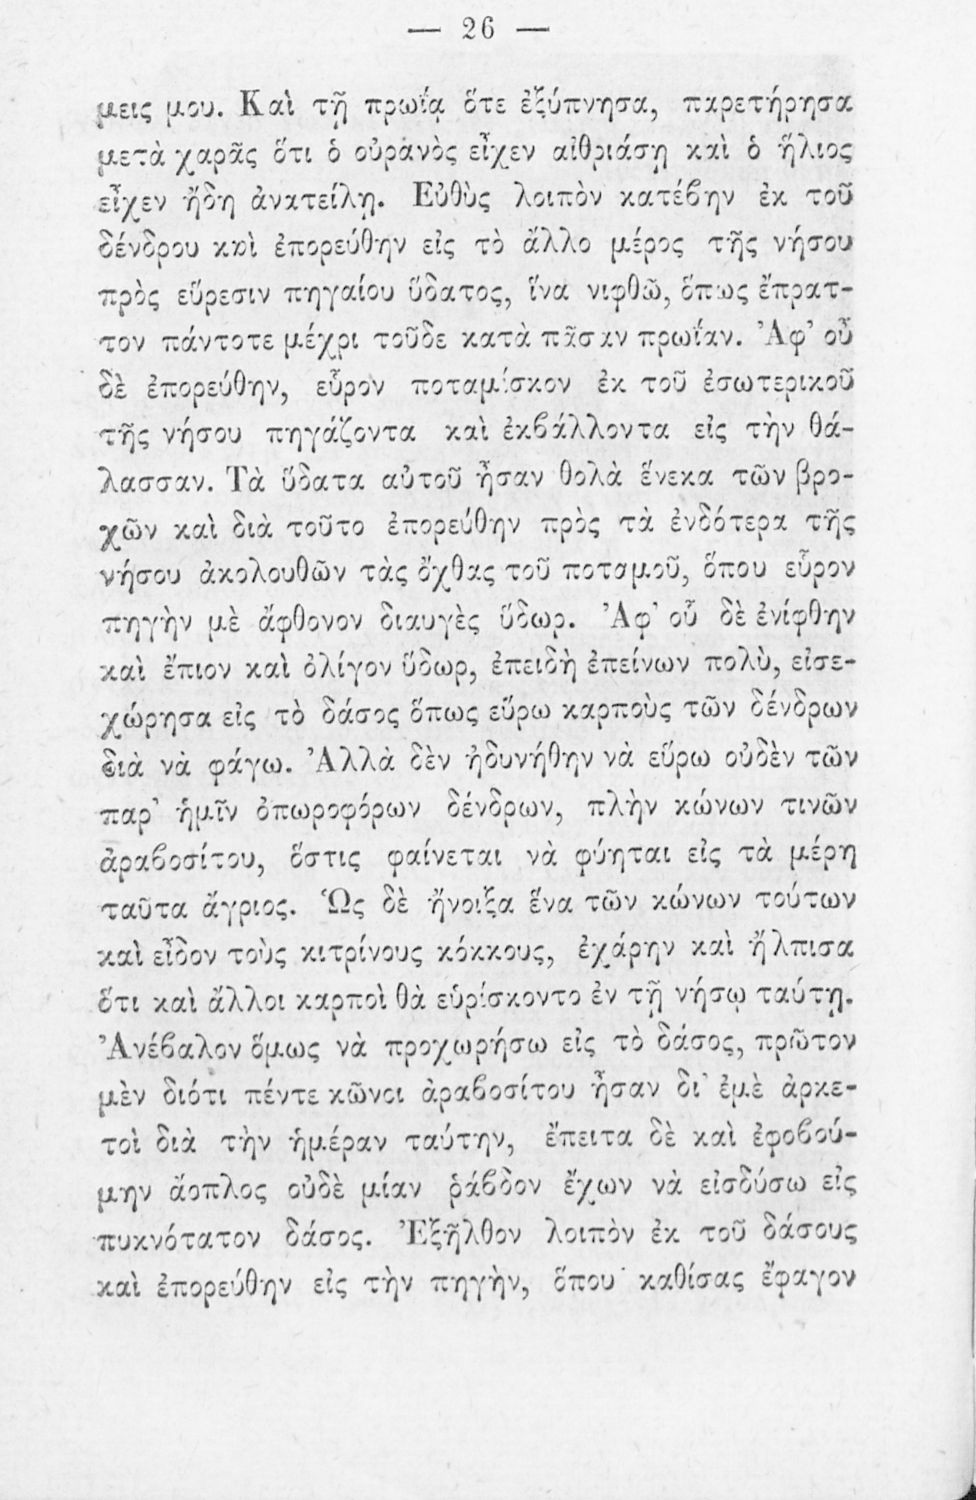 — 26 —
μεις μου. Καὶ τῇ πρωΐᾳ ὅτε ἐξύπνησα, παρετήρησα
μετὰ χαρᾶς ὅτι ὁ οὐρανὸς εἶχεν αἰθριάσῃ καὶ ὁ ἥλιος
εἶχεν ἤδη ἀνατείλῃ. Εὐθὺς λοιπὸν κατέβην ἐκ τοῦ
δένδρου καὶ ἐπορεύθην εἰς τὸ ἄλλο μέρος τῆς νήσου
πρὸς εὕρεσιν πηγαίου ὕδατος, ἵνα νιφθῶ, ὅπως ἔπρατ-
τον πάντοτε μέχρι τοῦδε κατὰ πᾶσαν πρωΐαν. Ἀφ’ οὗ
δὲ ἐπορεύθην, εὗρον ποταμίσκον ἐκ τοῦ ἐσωτερικοῦ
τῆς νήσου πηγάζοντα καὶ ἐκβάλλοντα εἰς τὴν θά-
λασσαν. Τὰ ὕδατα αὐτοῦ ἦσαν θολὰ ἕνεκα τῶν βρο-
χῶν καὶ διὰ τοῦτο ἐπορεύθην πρὸς τὰ ἐνδότερα τῆς
νήσου ἀκολουθῶν τὰς ὄχθας τοῦ ποταμοῦ, ὅπου εὗρον
πηγὴν μὲ ἄφθονον διαυγὲς ὕδωρ. Ἀφ’ οὗ δὲ ἐνίφθην
καὶ ἔπιον καὶ ὀλίγον ὕδωρ, ἐπειδὴ ἐπείνων πολὺ, εἰσε-
χώρησα εἰς τὸ δάσος ὅπως εὕρω καρποὺς τῶν δένδρων
διὰ νὰ φάγω. Ἀλλὰ δὲν ἠδυνήθην νὰ εὕρω οὐδὲν τῶν
παρ’ ἡμῖν ὀπωροφόρων δένδρων, πλὴν κώνων τινῶν
ἀραβοσίτου, ὅστις φαίνεται νὰ φύηται εἰς τὰ μέρη
ταῦτα ἄγριος. Ὡς δὲ ἤνοιξα ἕνα τῶν κώνων τούτων
καὶ εἶδον τοὺς κιτρίνους κόκκους, ἐχάρην καὶ ἤλπισα
ὅτι καὶ ἄλλοι καρποὶ θὰ εὑρίσκοντο ἐν τῇ νήσῳ ταύτῃ.
Ἀνέβαλον ὅμως νὰ προχωρήσω εἰς τὸ δάσος, πρῶτον
μὲν διότι πέντε κῶνοι ἀραβοσίτου ἦσαν δι’ ἐμὲ ἀρκε-
τοὶ διὰ τὴν ἡμέραν ταύτην, ἔπειτα δὲ καὶ ἐφοβού-
μην ἄοπλος οὐδὲ μίαν ῥάβδον ἔχων νὰ εἰσδύσω εἰς
πυκνότατον δάσος. Ἐξῆλθον λοιπὸν ἐκ τοῦ δάσους
καὶ ἐπορεύθην εἰς τὴν πηγὴν, ὅπου καθίσας ἔφαγον